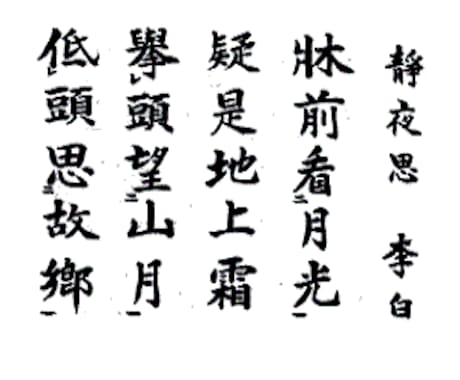 靜夜思 李白
牀前看月光
疑是地上霜
擧頭望山月
低頭思故鄉